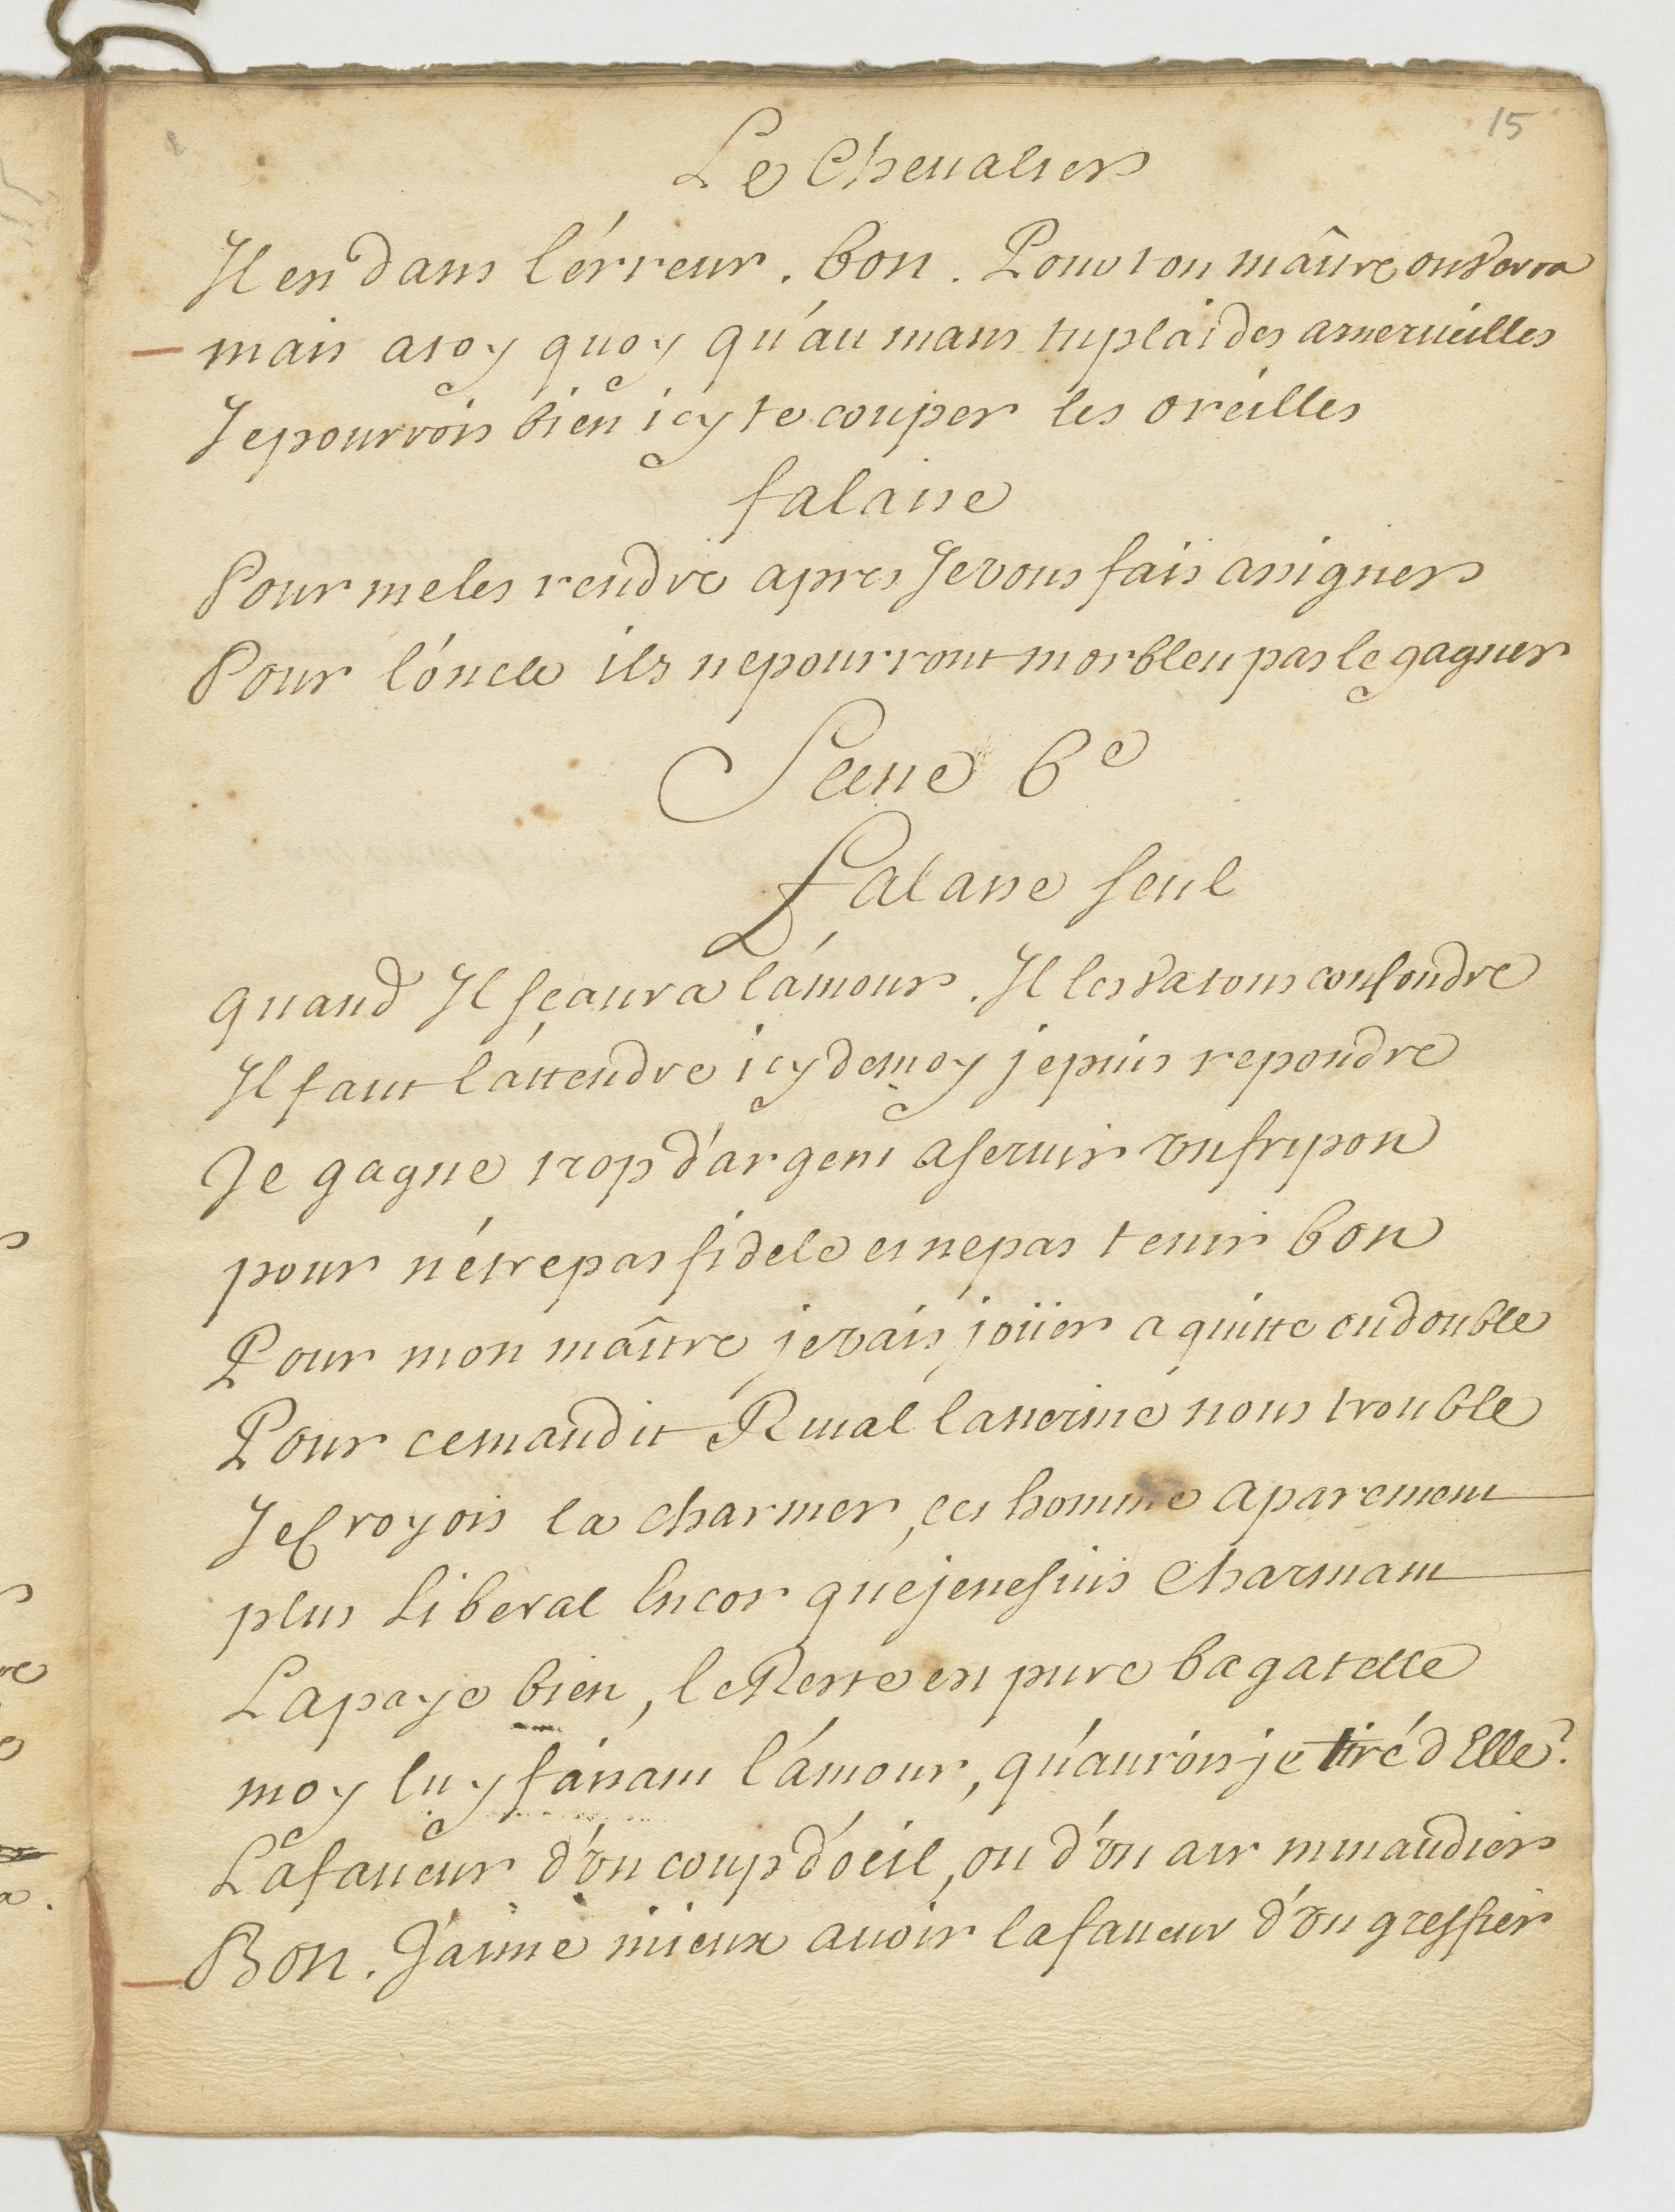 15
Le Cheualier
Il est dans l'érreur. bon. Pour ton maître on verra
mais a toy quoy qu'au mans tu plaides a merueilles
Je pourrois bien icy te couper les oreilles
falaise
Pour me les rendre apres Je vous fais assigner
Pour l'óncle ils ne pourront morbleu pas le gagner
Scene 6e
Falaise seul
quand Il sçaura l'ámour. Il les va tous confondre
Il faut l'áttendre icy de moy je puis repondre
Je gagne trop d'argent a seruir un fripon
pour n'étre pas fidele et ne pas tenir bon
Pour mon maître je vais joüer a quitte ou double
Pour ce maudit Riual la nerine nous trouble
Je Croyois la charmer, cet homme aparement
plus Liberal Encor que je ne suis Charmant
La paye bien, le Reste est pure bagatelle
moy luy faisant l'ámour, qu'aurois je tiré d'Elle?
La faueur d'un coup d'óeil, ou d'un air minaudier
Bon. J'aime mieux auoir la faueur d'un greffier